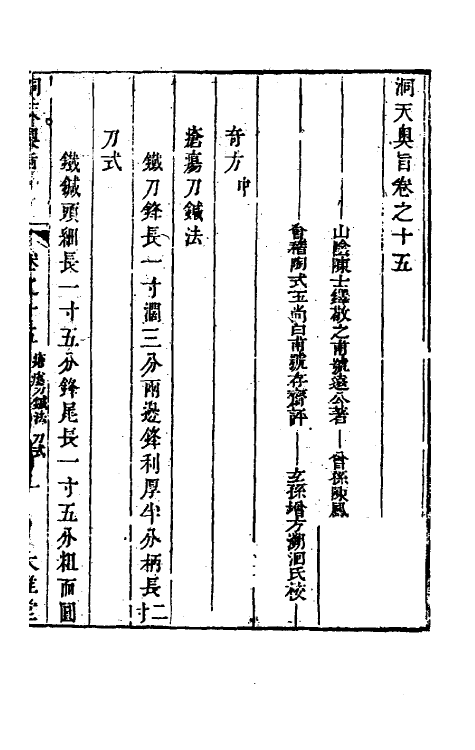 洞天奧旨卷之十五
山陰陳士鐸敬之甫號遠公著 曾孫陳鳳
會稽陶式玉尚白甫號存齋評 玄孫增方溯洄氏校
奇方中
瘡瘍刀鍼法
鐵刀鋒長一寸濶三分兩邊鋒利厚半分柄長二寸
刀式
鐵鍼頭細長一寸五分鋒尾長一寸五分粗而圓
卷之十五 瘡瘍刀鍼法 刀式 一 大雅堂